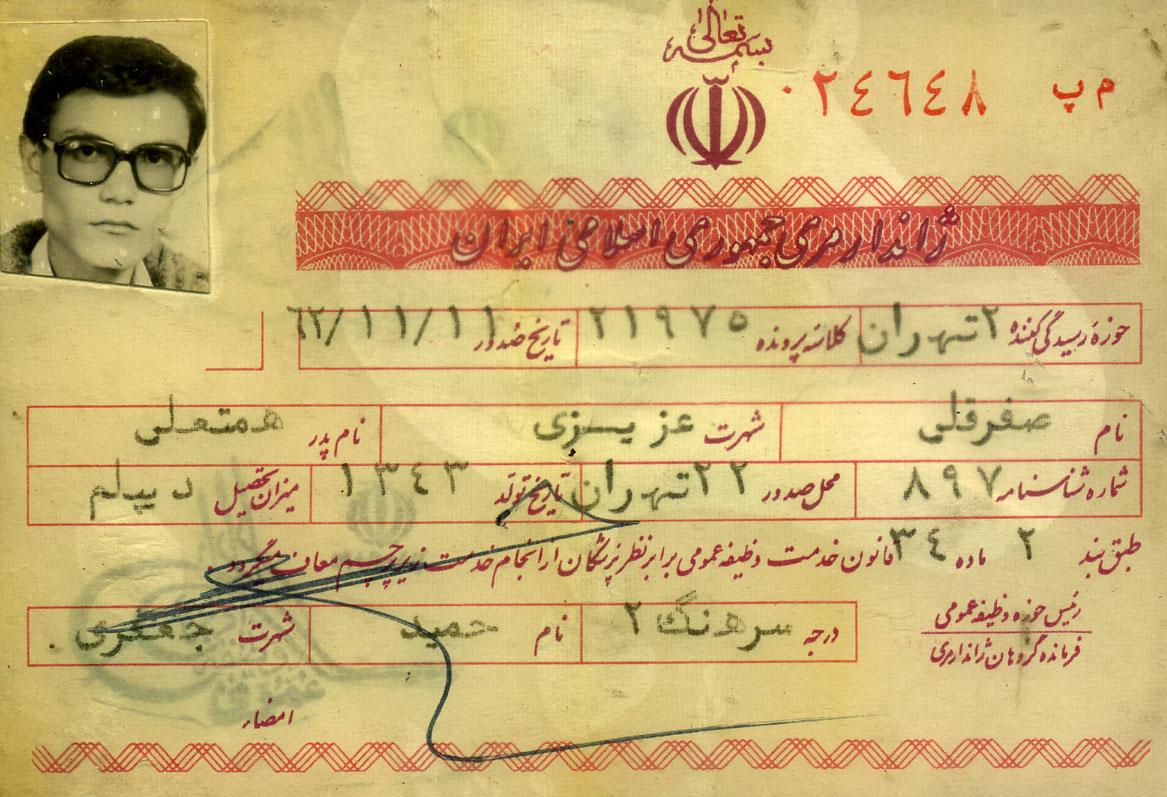 بسمه تعالی
م پ ۰۲۴۶۴۸
ژاندارمری جمهوری اسلامی ایران
حوزه رسیدگی کننده ۲ تهران کلاسه پرونده ۲۱۹۷۵ تاریخ صدور ۶۲/۱۱/۱۱
نام صفرقلی شهرت عزیزی نام پدر همتعلی
شماره شناسنامه ۸۹۷ محل صدور ۲۲ تهران تاریخ تولد ۱۳۴۳ میزان تحصیل دیپلم
طبق بند ۲ ماده ۳۴ قانون خدمت وظیفه عمومی برابر نظر پزشکان از انجام خدمت زیر پرچم معاف میگردد
رئیس حوزه وظیفه عمومی
فرمانده گروهان ژاندارمری
درجه سرهنگ ۲ نام حمید شهرت جعفری
امضاء